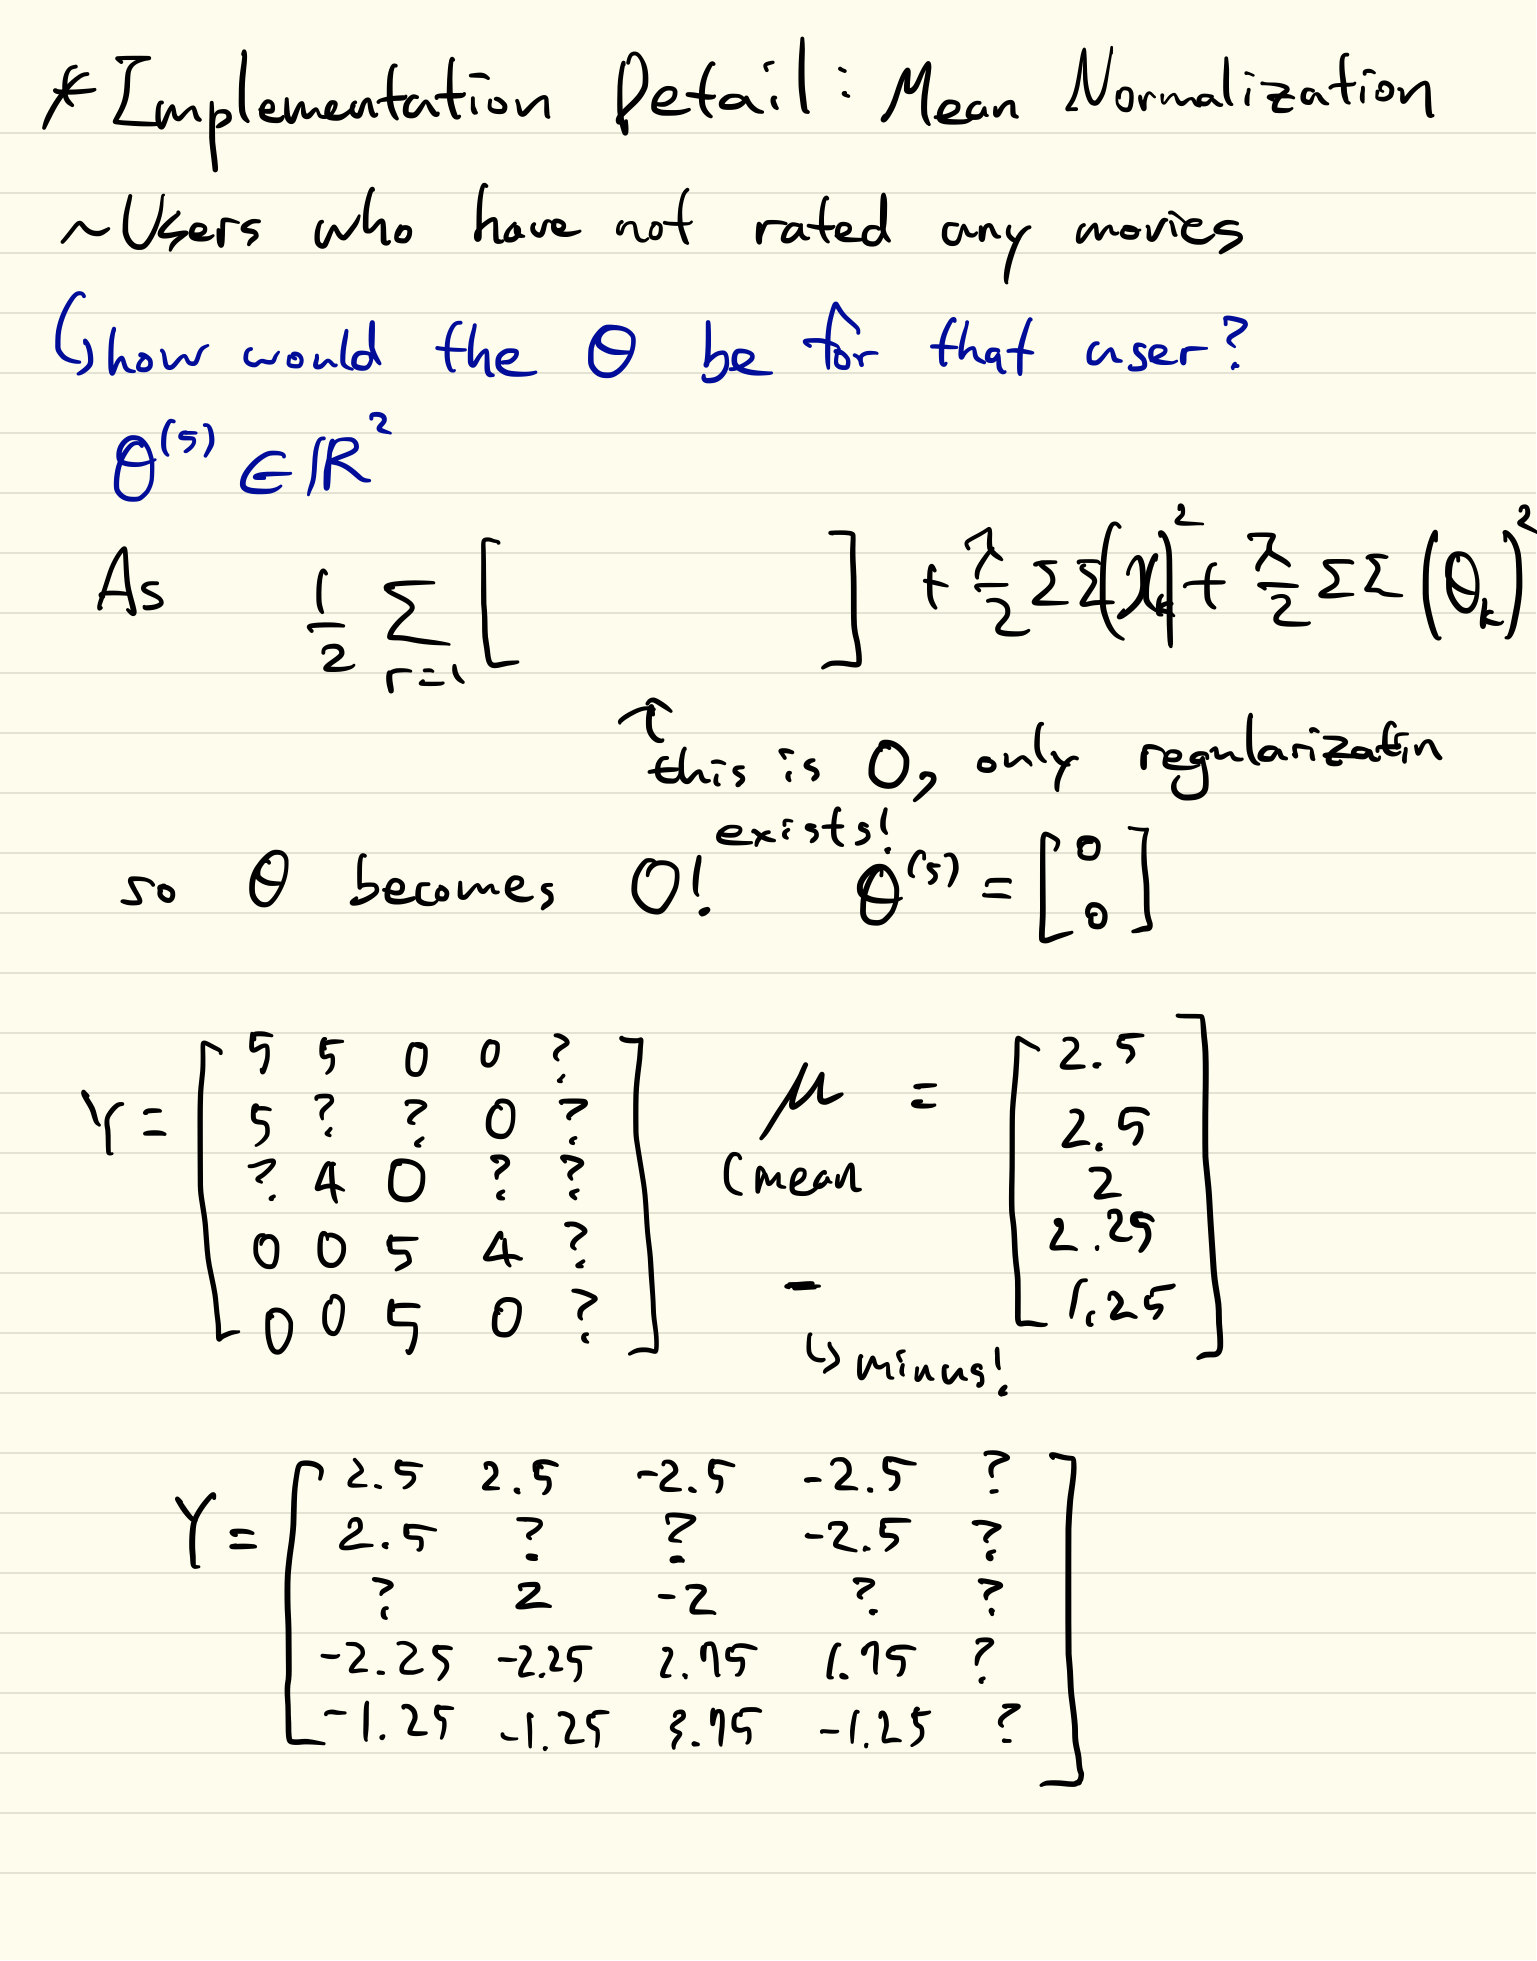 * Implementation Detail: Mean Normalization
~Users who have not rated any movies
↳how would the θ be for that user?
θ^(5) ∈ ℝ^2
As 1/2 Σ_{r=1} [ ] + λ/2 ΣΣ(x_k)^2 + λ/2 ΣΣ(θ_k)^2
↑
this is 0, only regularizatin
exists!
so θ becomes 0! θ^(5) = [0 0]
Y = [5 5 0 0 ?
5 ? ? 0 ?
? 4 0 ? ?
0 0 5 4 ?
0 0 5 0 ?]
μ = [2.5
2.5
2
2.25
1.25]
(mean
-
↳ minus!
Y = [2.5 2.5 -2.5 -2.5 ?
2.5 ? ? -2.5 ?
? 2 -2 ? ?
-2.25 -2.25 2.75 1.75 ?
-1.25 -1.25 3.75 -1.25 ?]